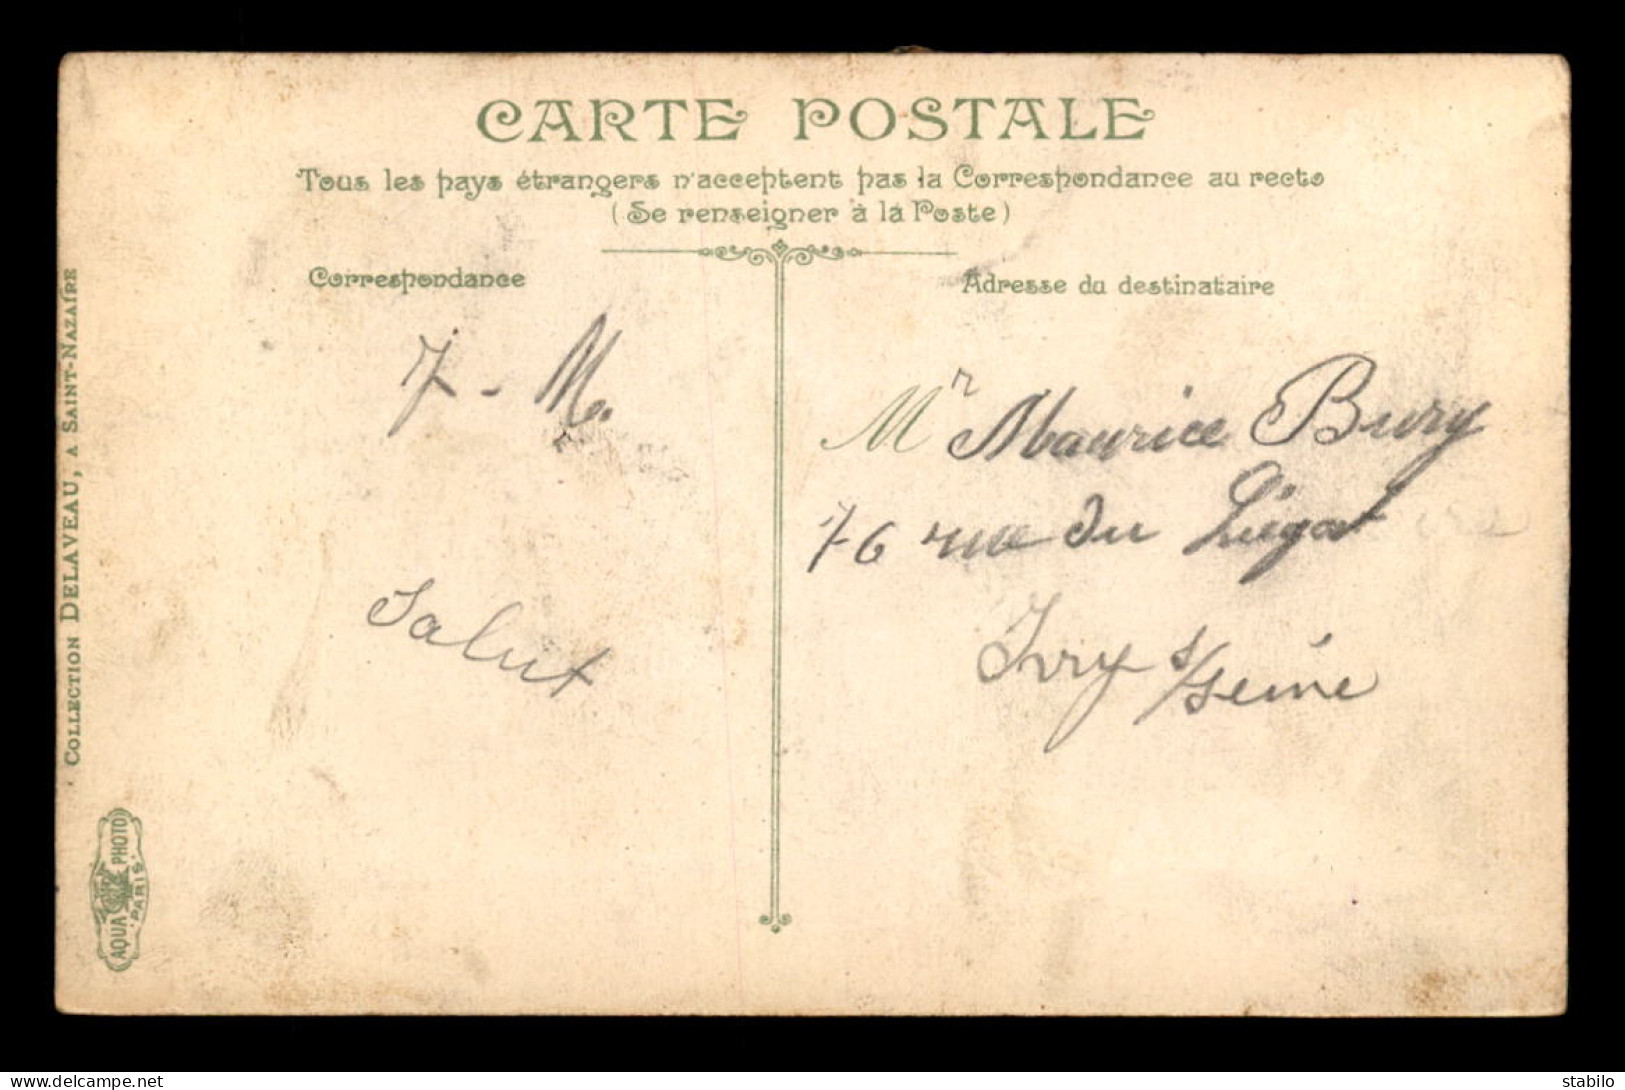 CARTE POSTALE
Tous les pays étrangers n'acceptent pas la Correspondance au recto
(Se renseigner à la Poste)
Correspondance
7 - M.
Salut
Adresse du destinataire
Mr Maurice Bury
76 rue du Liégat
Ivry s/seine
COLLECTION DELAVEAU, A SAINT-NAZAIRE
AQUA PHOTO
PARIS
delcampe.net
stabilo